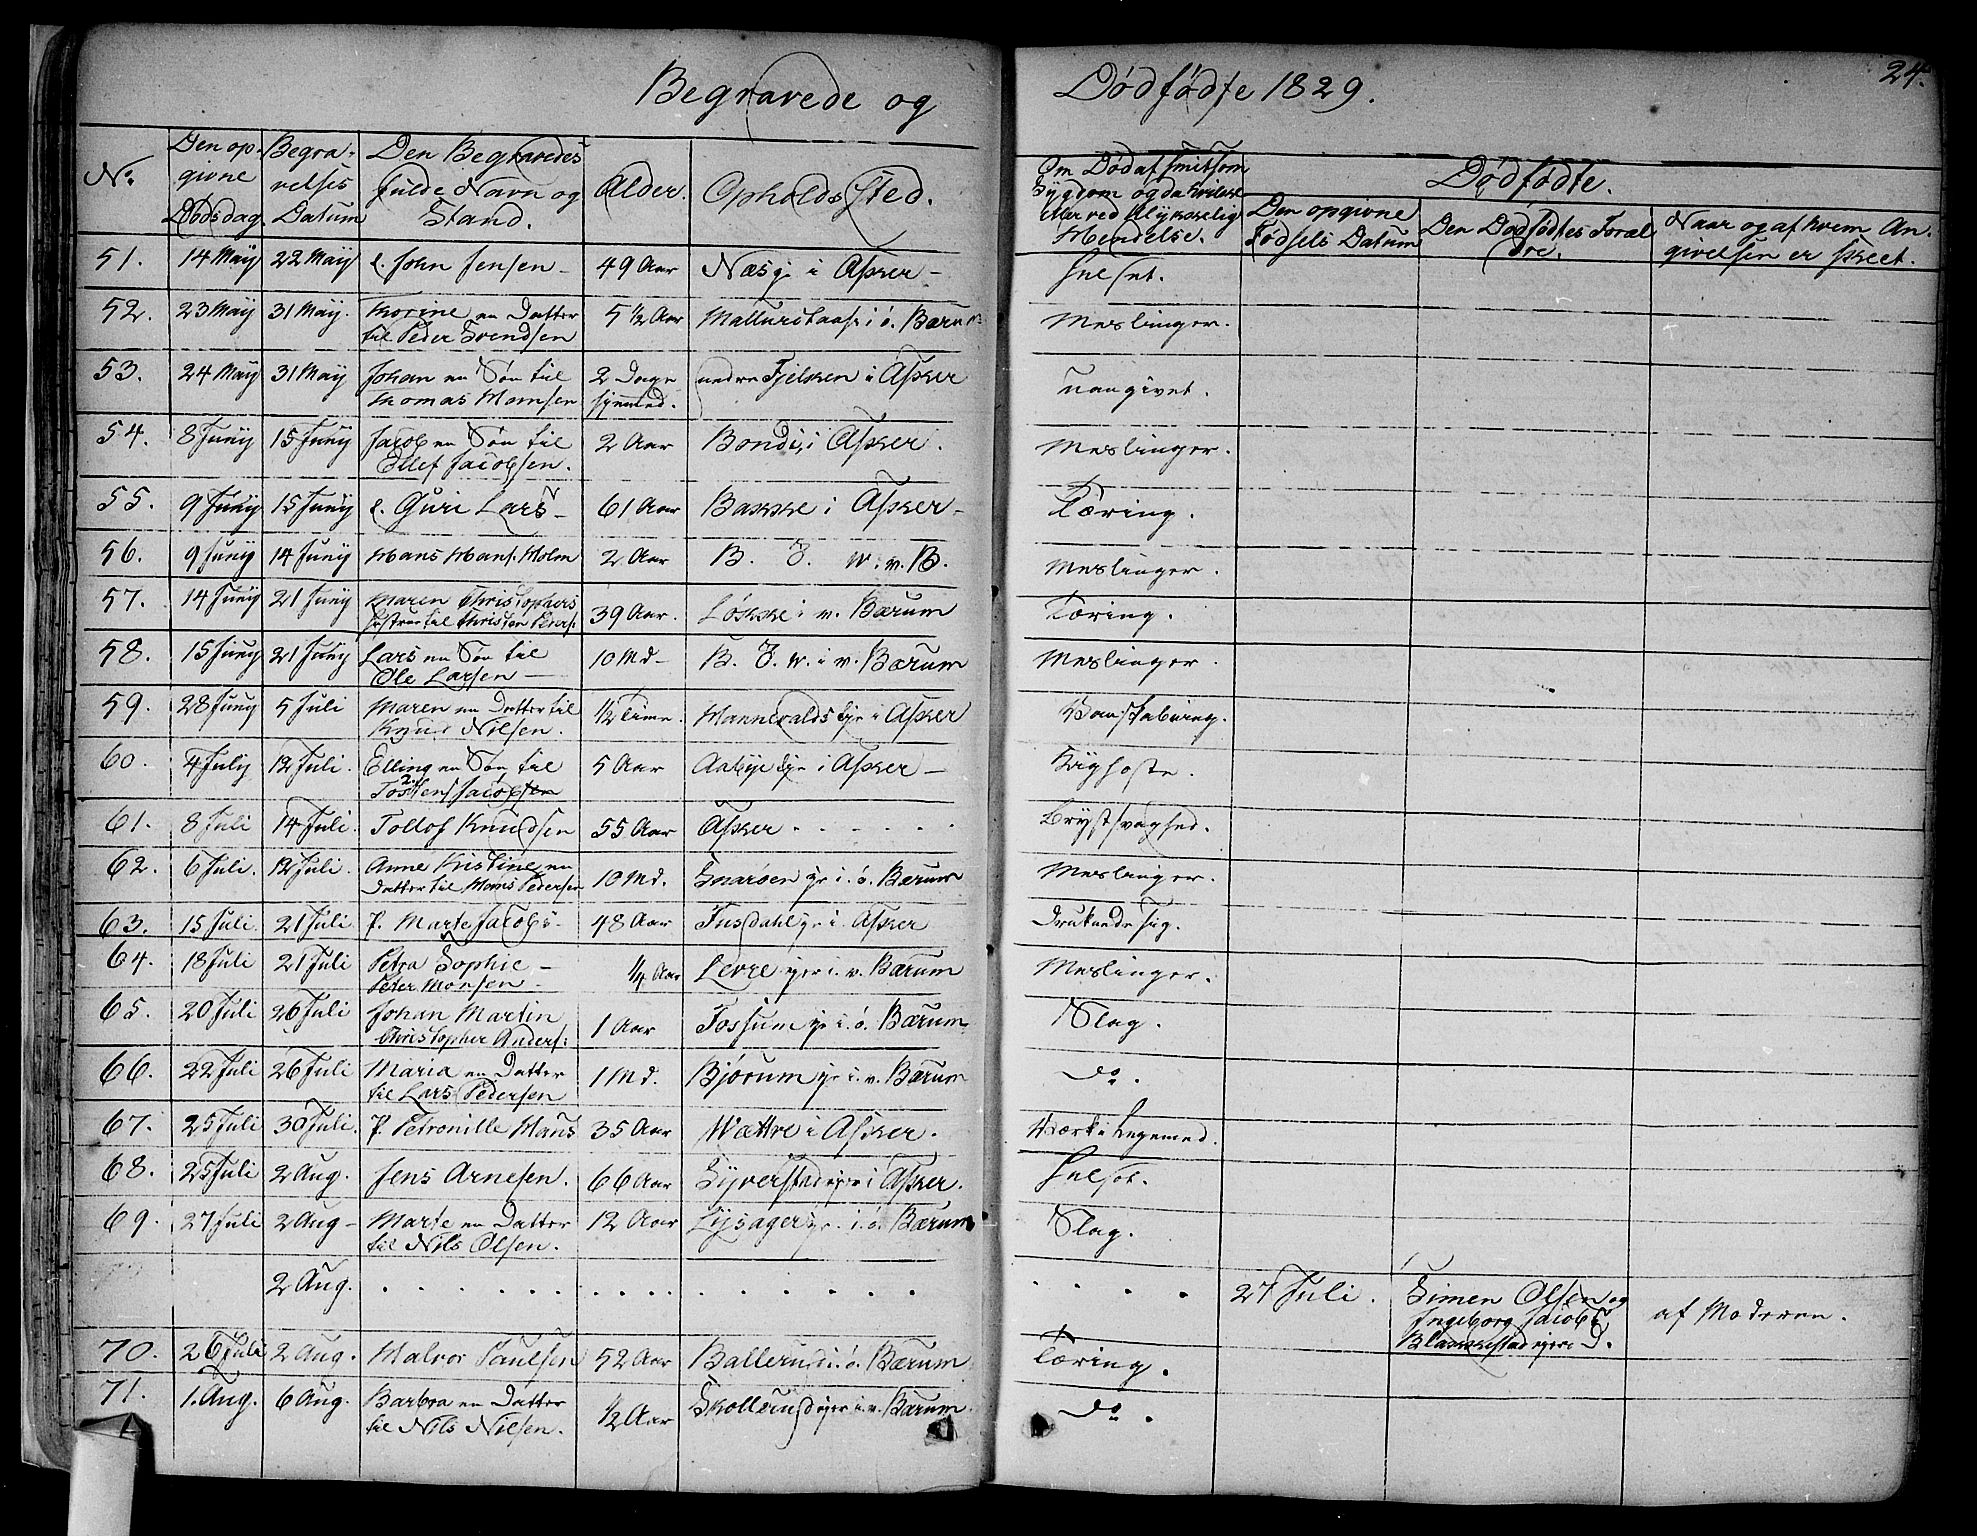 Begravede og Dødfødte 1829.
24.
No. | Den opgivne Dødsdag. | Begravelses Datum | Den Begravedes fulde Navn og Stand. | Alder. | Opholds Sted. | Om Død af smitsom Sygdom og da hvilken eller ved Ulykkelig Hendelse. | Dødfødte.
Den opgivne Fødsels Datum | Den Dødfødtes Foræl dre. | Naar og af hvem Angivelsen er skeet.
51. | 14 May | 22 May | e. John Jensen – | 49 Aar | Næs i Asker –
52. | 23 May | 31 May. | Thorine en Datter til Peder Svendsen | 5 1/2 Aar | i ö. Bærum | Meslinger.
53. | 24 May | 31 May | Johan en Søn til Thomas Hansen | 2 Dage | nedre i Asker | uangivet.
54. | 8 Juny | 15 Juny | Jacob en Søn til Ellef Jacobsen. | 2 Aar | Bondi i Asker. | Meslinger.
55. | 9 Juny | 15 Juny | e. Guri Lars – | 61 Aar | Bakke i Asker – | Tæring.
56. | 9 Juny | 14 Juny | Hans Hans. Holm | 2 Aar | B. J. W. v. B. | Meslinger.
57. | 14 Juny | 21 Juny | Maren Christophers Hustrue til Christen Peders. | 39 Aar. | Løkke i v. Bærum | Tæring.
58. | 15 Juny | 21 Juny | Lars en Søn til Ole Larsen – | 10 Md – | B. J. W. i v. Bærum | Meslinger.
59. | 28 Juny | 5 Juli | Maren en Datter til Knud Nilsen. | 1/2 Time. | i Asker
60. | 4 July | 12 Juli. | Elling en Søn til Tosten Jacobsen | 5 Aar | Aabye eje i Asker – | Kighoste.
61. | 8 Juli | 14 Juli. | Tollof Knudsen | 55 Aar | Asker . . . . . | Brystsvaghed.
62. | 6 Juli. | 12 Juli. | Anne Kristine en Datter til Hans Pedersen | 10 Md. | Snarøen i. ö. Bærum | Meslinger.
63. | 15 Juli | 21 Juli | P. Marte Jacobs – | 48 Aar | Fusdahl i. Asker
64. | 18 Juli | 21 Juli | Petra Sophie – Peter Monsen. | 1/4 Aar | Levre i. v. Bærum | Meslinger.
65. | 20 Juli | 26 Juli | Johan Martin Christopher Anders: | 1 Aar | Fossum i. ö. Bærum | Slag.
66. | 22 Juli | 26 Juli | Maria en Datter til Lars Pedersen | 1 Md. | Bjørum i. v. Bærum | Do.
67. | 25 Juli | 30 Juli. | P. Petronille Hans | 35 Aar | Wættre i Asker. | Værk i Legemed.
68. | 25 Juli | 2 Aug. | Jens Arnesen. | 66 Aar | Syverstad i Asker.
69. | 27 Juli | 2 Aug – | Marte en Datter til Nils Olsen. | 12 Aar | Lysager i. ö. Bærum | Slag.
2 Aug. | . . . . . | . . . | . . . . . . | . . . | 27 Juli. | Simen Olsen og Ingeborg Jacobs | af Moderen.
70. | 26 Juli | 2 Aug. | Halvor Paulsen | 52 Aar | Ballerud i. ö. Bærum | Tæring.
71. | 1. Aug. | 6 Aug. | Barbra en Datter til Nils Nilsen. | 1/2 Aar | Skollerud i. v. Bærum. | Do.